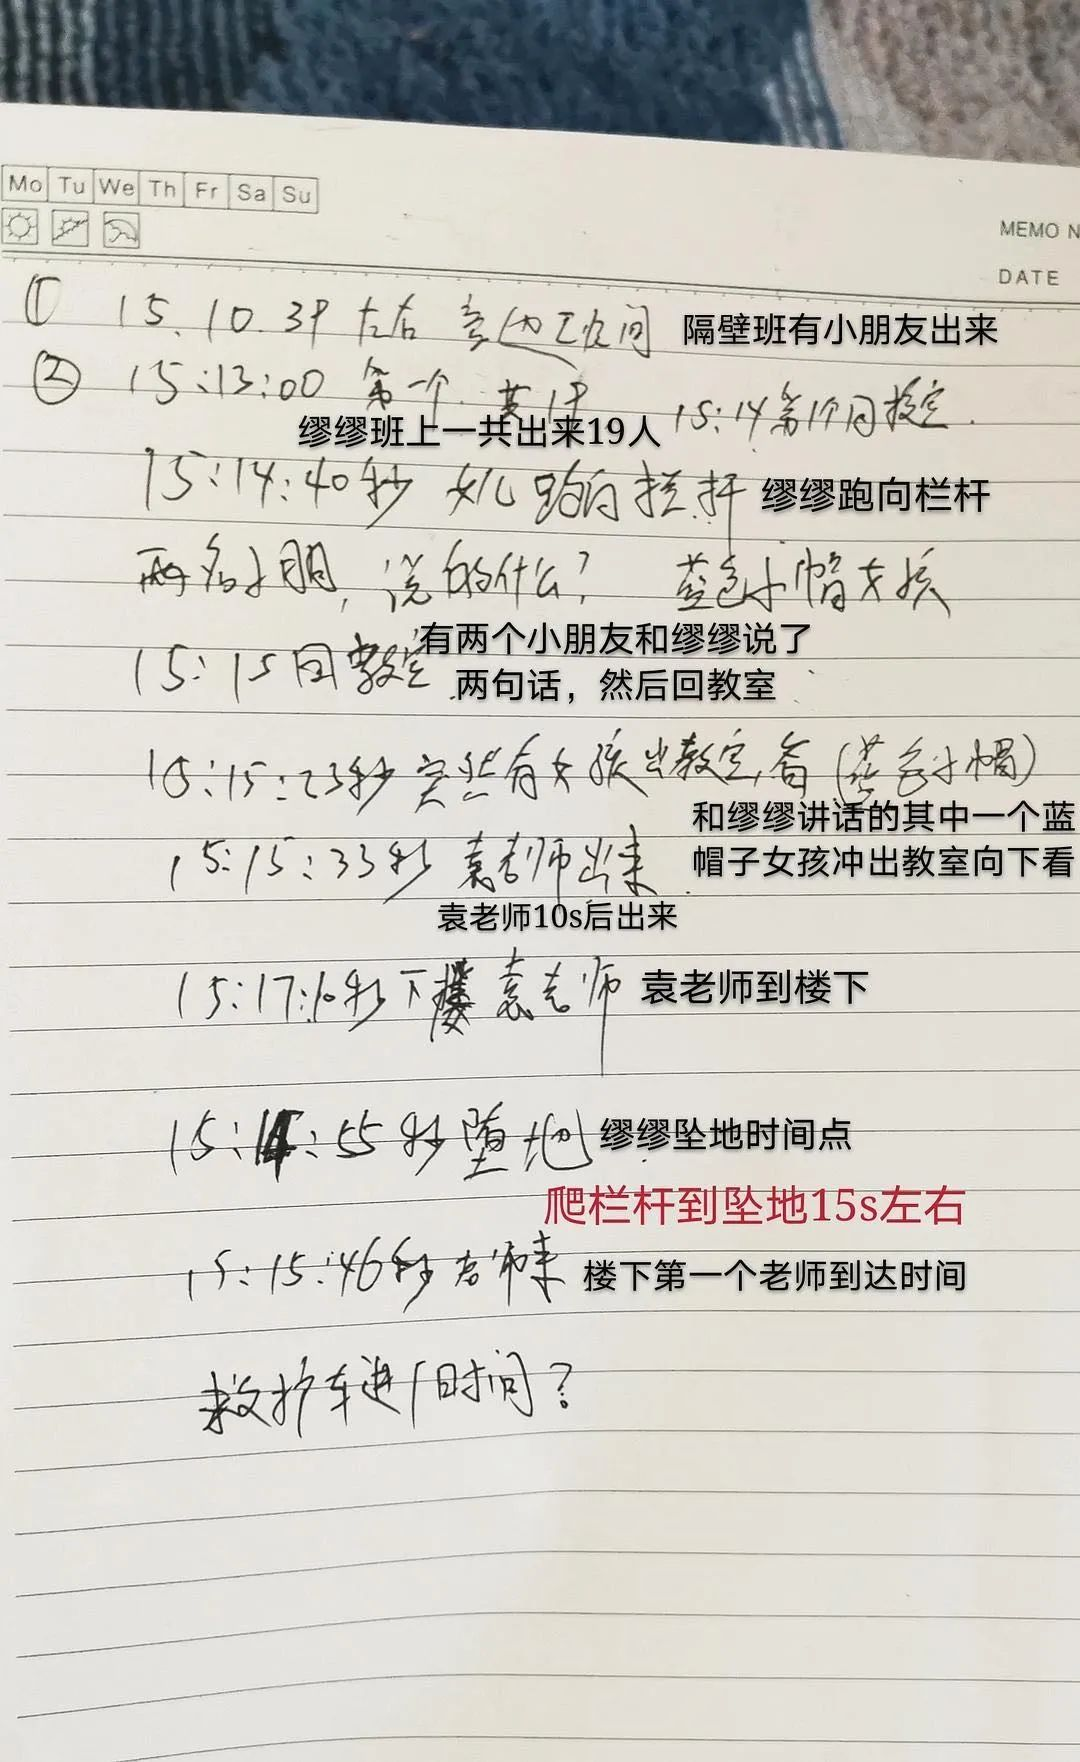 Mo Tu We Th Fr Sa Su
MEMO N
DATE
① 15.10.39 左右 旁边 间 隔壁班有小朋友出来
② 15:13:00 第一个 15:14 第1个回教室.
缪缪班上一共出来19人
15:14:40秒 女儿跑向拦杆 缪缪跑向栏杆
两名小朋,说的什么? 蓝色小帽女孩
15:15回教室 有两个小朋友和缪缪说了
两句话，然后回教室
15:15:23秒突然有女孩出教室,看(蓝色小帽)
和缪缪讲话的其中一个蓝
15:15:33秒 袁老师出来 帽子女孩冲出教室向下看
袁老师10s后出来
15:17:10秒下楼 袁老师 袁老师到楼下
15:14:55秒堕地 缪缪坠地时间点
爬栏杆到坠地15s左右
15:15:46秒老师来 楼下第一个老师到达时间
救护车进 时间?